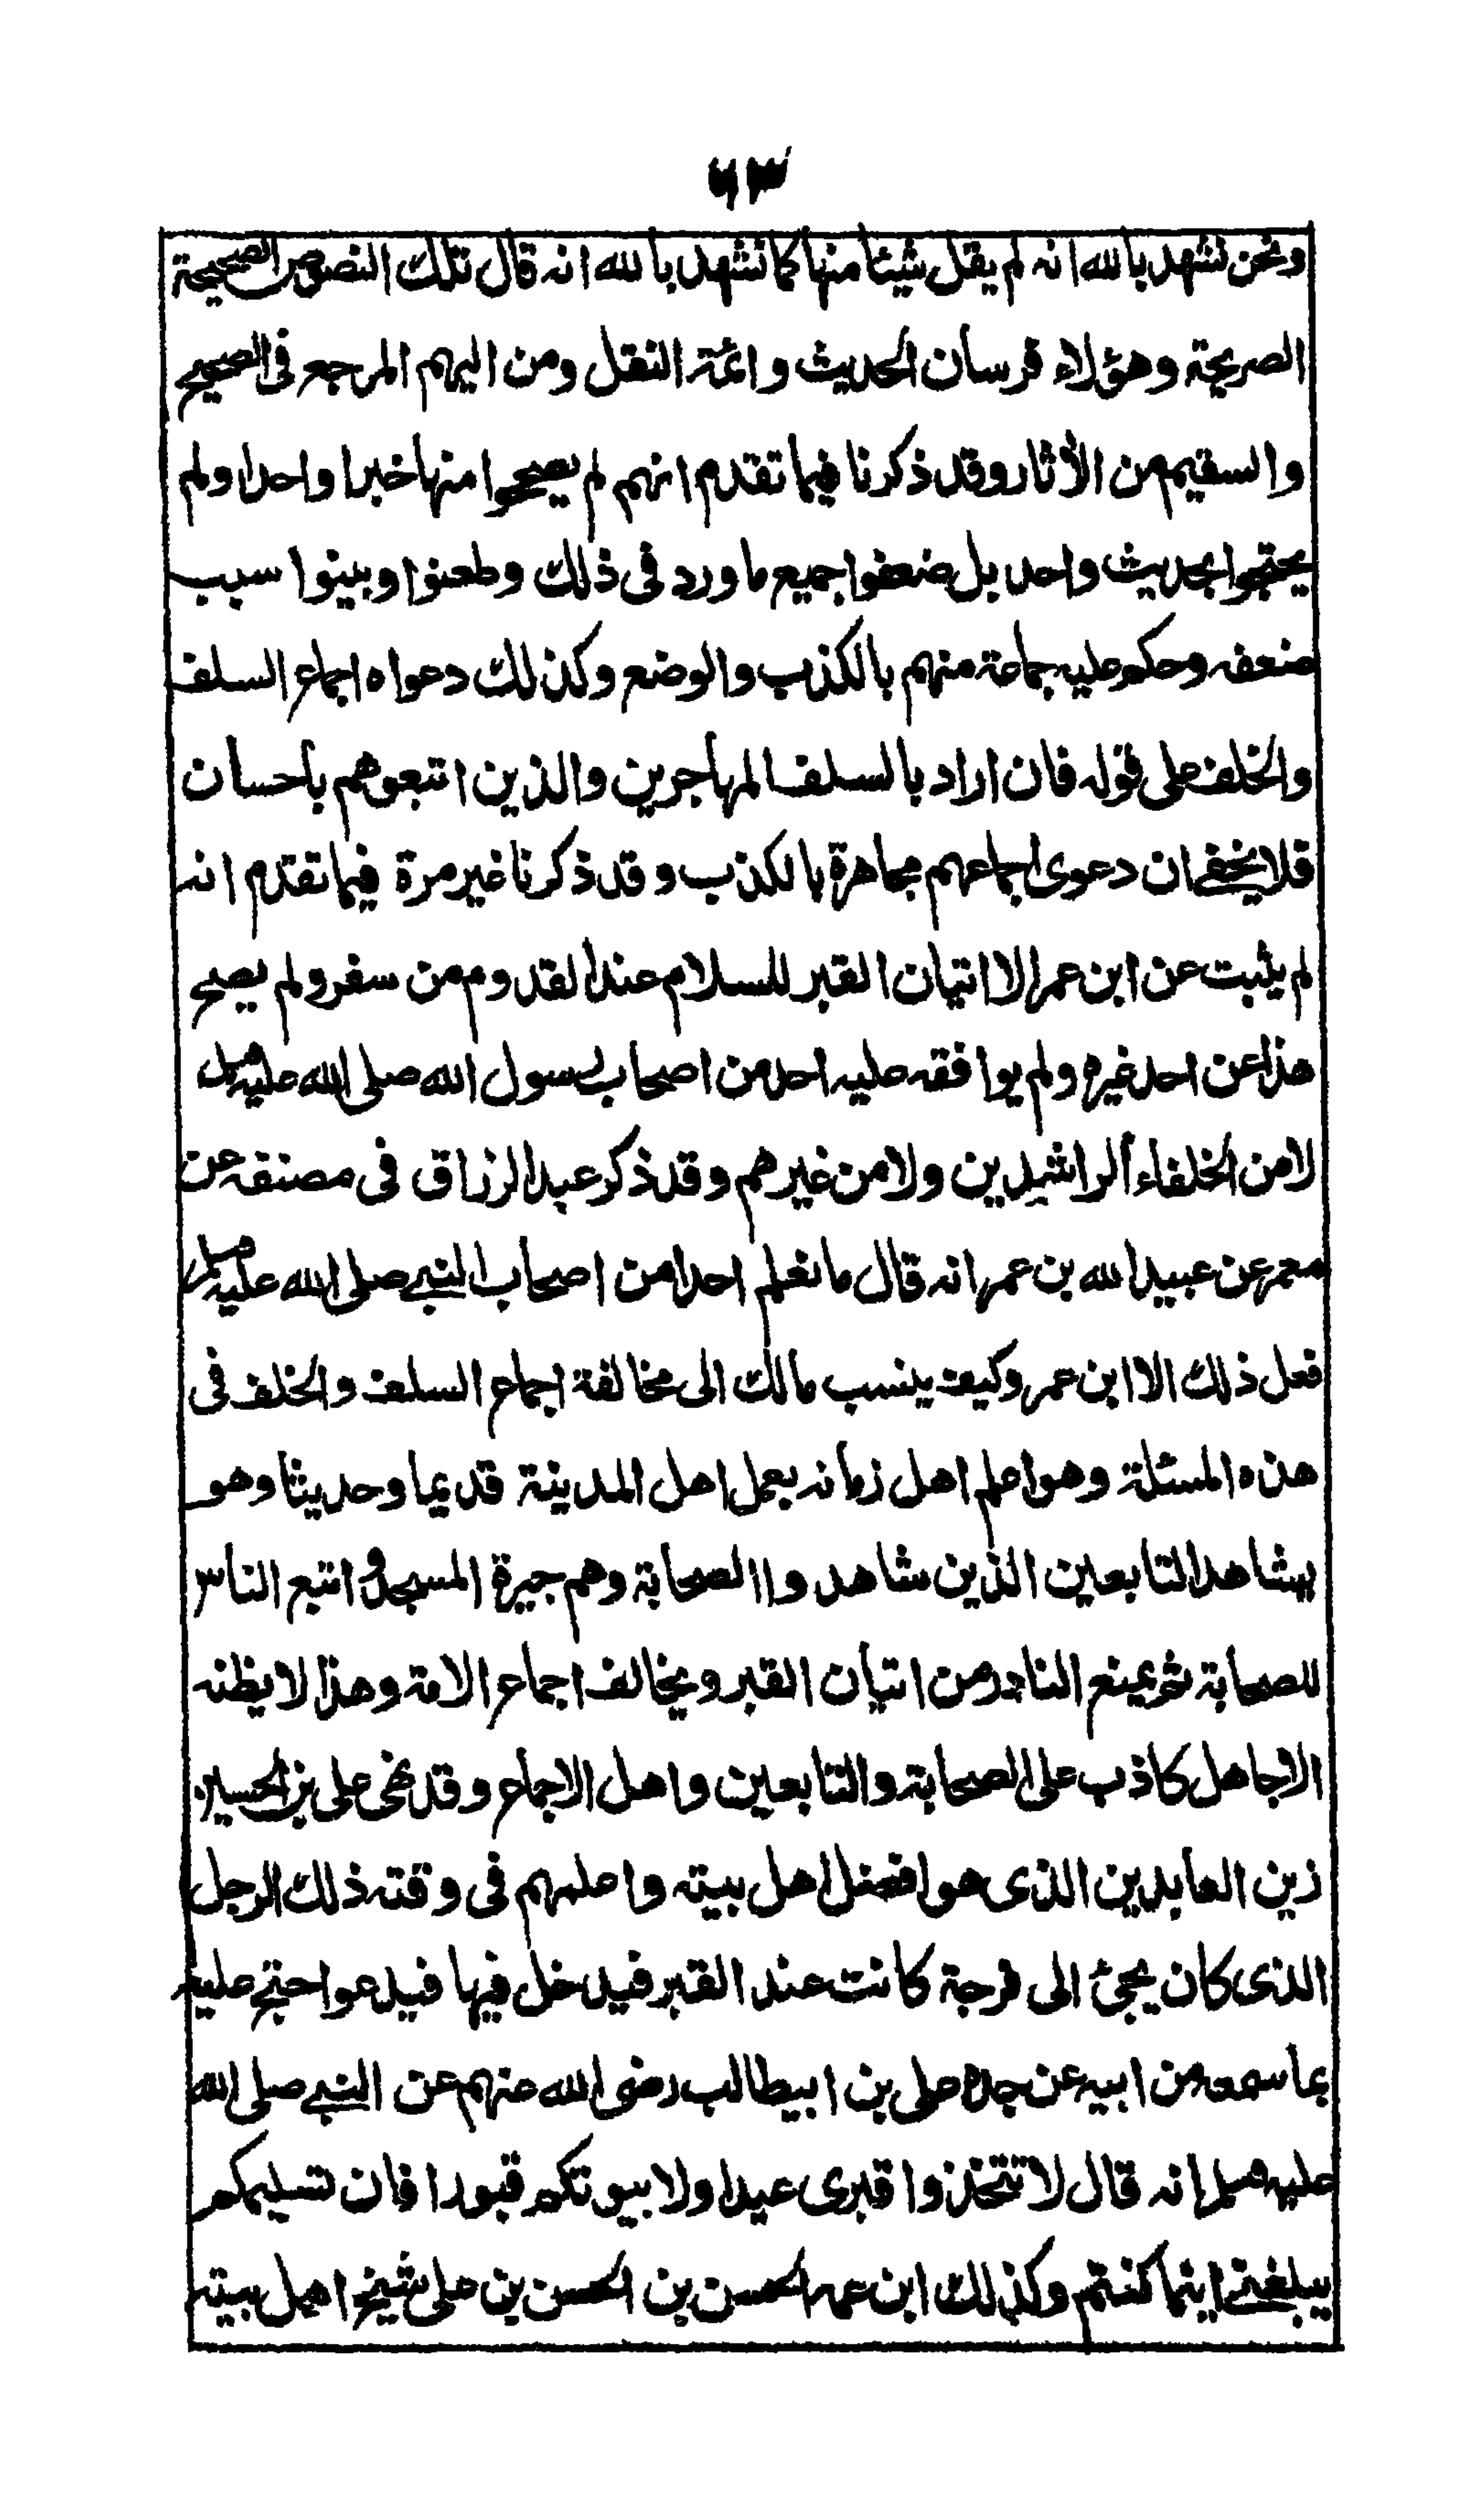 ونحن نشهد بالله انه لم يقل شيئا منها كما نشهد بالله انه قال تلك النصوص الصحيحة
الصريحة وهؤلاء فرسان الحديث وائمة النقل ومن اليهم المرجع فى الصحيح
والسقيم من الأثار وقد ذكرنا فيما تقدم انهم لم يصححوا منها خبرا واحدا ولم
يحتجوا بحديث واحد بل ضعفوا جميع ما ورد فى ذلك وطعنوا وبينوا سبب
ضعفه وحكم عليه جماعة منهم بالكذب والوضع وكذلك دعواه اجماع السلف
والخلف على قوله فان اراد بالسلف المهاجرين والذين اتبعوهم باحسان
فلا يخفى ان دعوى اجماعهم مجاهرة بالكذب وقد ذكرنا غير مرة فيما تقدم انه
لم يثبت عن ابن عمر الا اتيان القبر للسلام عند القدوم من سفر ولم يصح
هذا عن احد غيره ولم يوافقه عليه احد من اصحاب رسول الله صلى الله عليه وسلم
لا من الخلفاء الراشدين ولا من غيرهم وقد ذكر عبد الرزاق فى مصنفه عن
معمر عن عبيد الله بن عمر انه قال ما نعلم احدا من اصحاب النبي صلى الله عليه وسلم
فعل ذلك الا ابن عمر وكيف ينسب مالك الى مخالفة اجماع السلف والخلف فى
هذه المسئلة وهو اعلم اهل زمانه بعمل اهل المدينة قديما وحديثا وهو
يشاهد التابعين الذين شاهدوا الصحابة وهم جيرة المسجد واتبع الناس
للصحابة ثم يمنع الناذر من اتيان القبر ويخالف اجماع الامة وهذا لا يظنه
الا جاهل كاذب على الصحابة والتابعين واهل الاجماع وقد نهى على بن الحسين
زين العابدين الذى هو افضل اهل بيته واعلمهم فى وقته ذلك الرجل
الذى كان يجئ الى فرجة كانت عند القبر فيدخل فيها فيدعو واحتج عليه
بما سمعه من ابيه عن جده على بن ابيطالب رضى الله عنهم عن النبي صلى الله
عليه وسلم انه قال لا تتخذوا قبرى عيدا ولا بيوتكم قبورا فان تسليمكم
يبلغنى اينما كنتم وكذلك ابن عمه الحسن بن الحسن بن على شيخ اهل بيته